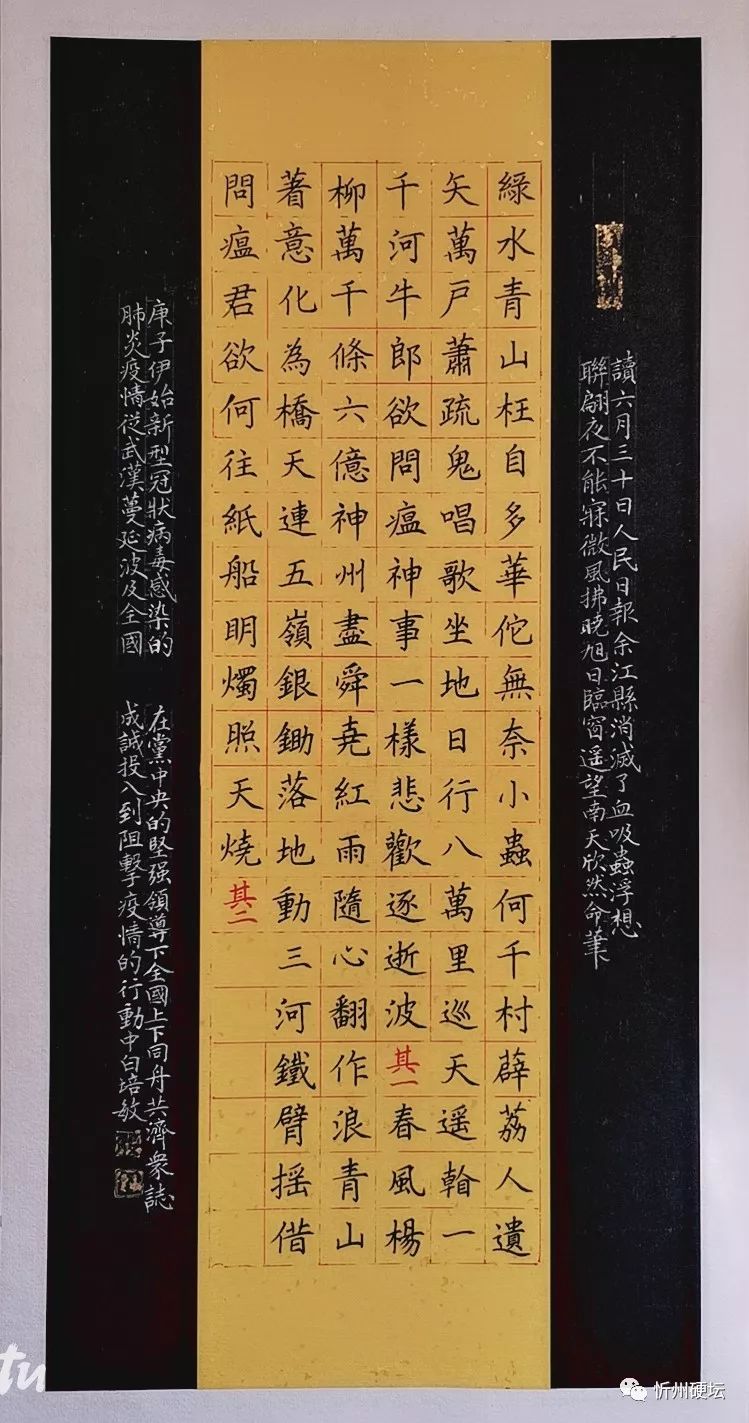 讀六月三十日人民日報余江縣消滅了血吸蟲浮想
聯翩夜不能寐微風拂曉旭日臨窗遥望南天欣然命筆
綠水青山枉自多華佗無奈小蟲何千村薜荔人遺
矢萬戸蕭疏鬼唱歌坐地日行八萬里巡天遥翰一
千河牛郎欲問瘟神事一樣悲歡逐逝波其一春風楊
柳萬千條六億神州盡舜堯紅雨隨心翻作浪青山
着意化為橋天連五嶺銀鋤落地動三河鐵臂摇借
問瘟君欲何往紙船明燭照天燒其二
庚子伊始新型冠狀病毒感染的
肺炎疫情從武漢蔓延波及全國
在黨中央的堅强領導下全國上下同舟共濟衆誌
成誠投入到阻擊疫情的行動中白培敏
tu
忻州硬坛